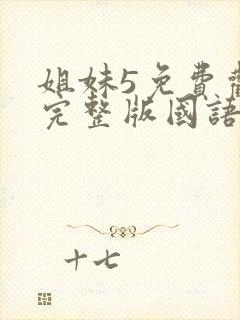 姐妹5免費
完整版國語
十七